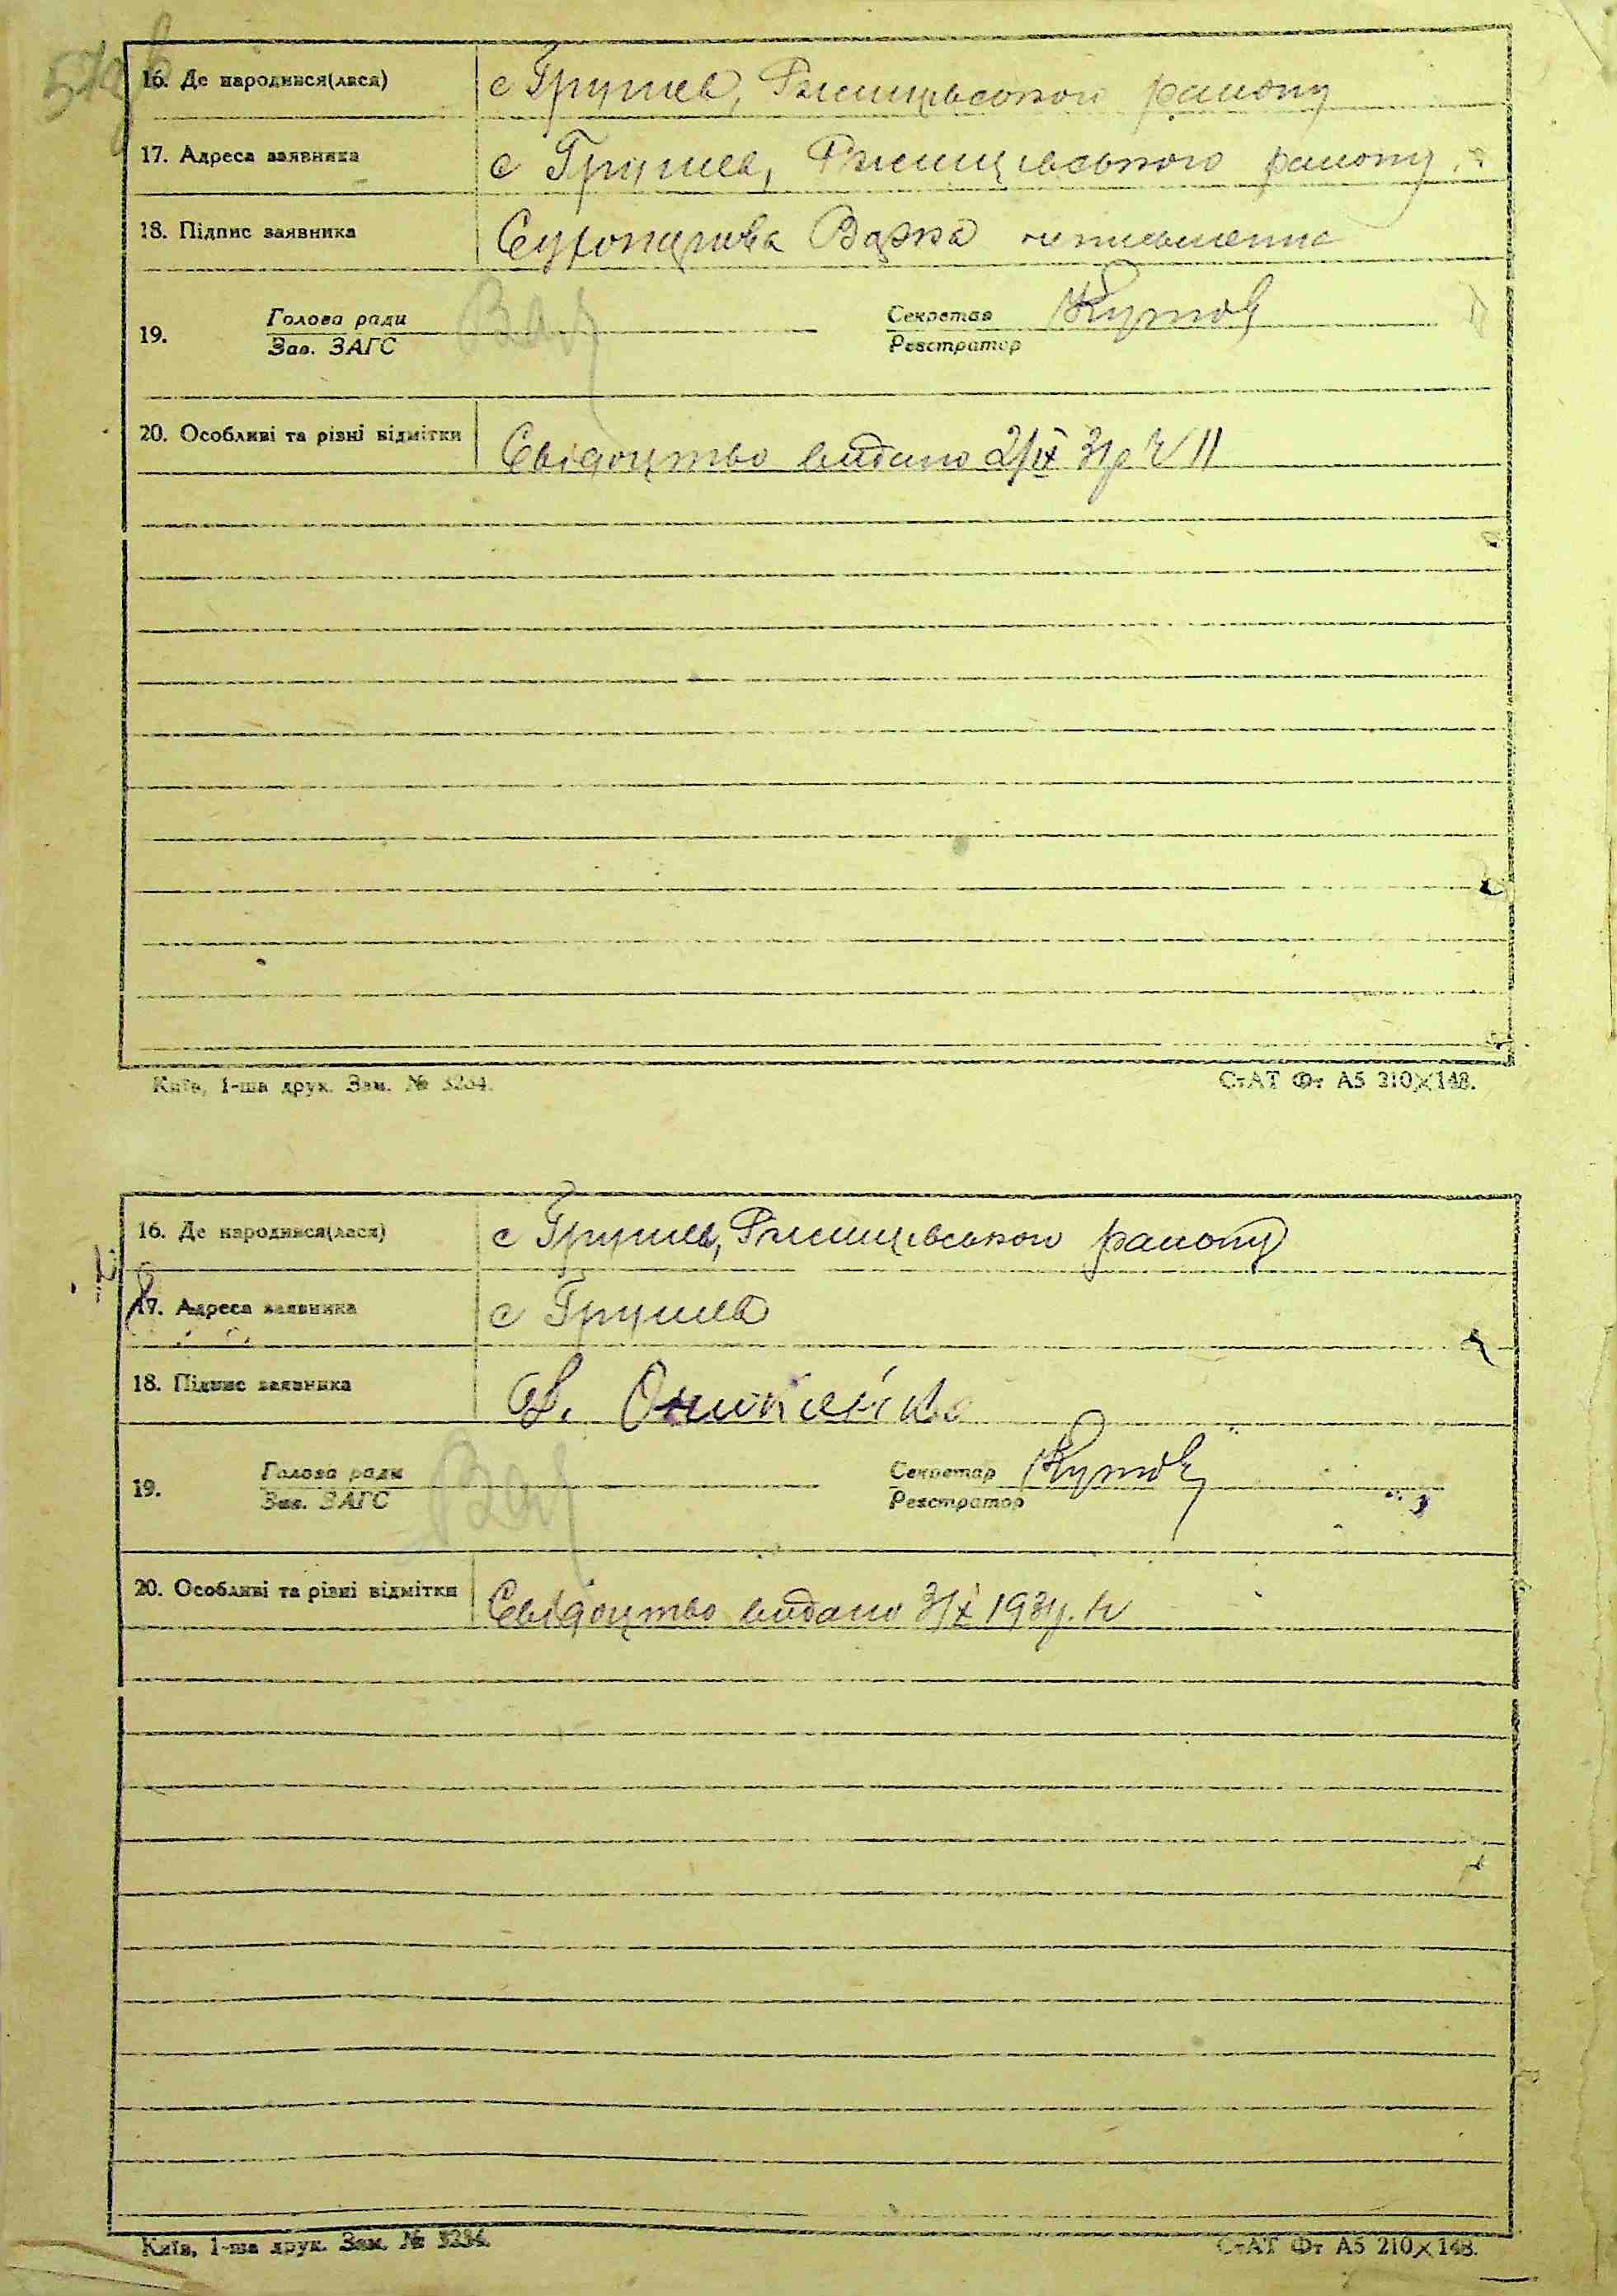 16. Де народився(лася) с Грушев, Ржищівського району
17. Адреса заявника с Грушев, Ржищівського району
18. Підпис заявника Сухопарова Варка неписьменна
Голова ради Секретар
19.
Зав. ЗАГС Реєстратор
20. Особливі та різні відмітки Свідоцтво видано 2/IX 31р Ч 11
Київ, 1-ша друк. Зам. № 3284. СтАТ Фт А5 210×148.
16. Де народився(лася) с Грушев, Ржищівського району
17. Адреса заявника с Грушев
18. Підпис заявника
Голова ради Секретар
19.
Зав. ЗАГС Реєстратор
20. Особливі та різні відмітки Свідоцтво видано
Київ, 1-ша друк. Зам. № 3284. СтАТ Фт А5 210×148.